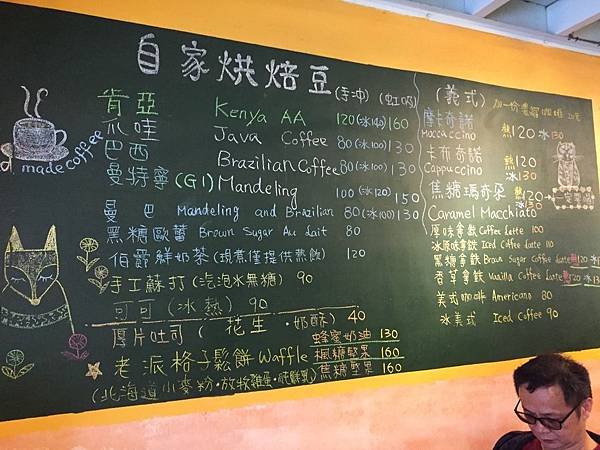 自家烘焙豆 (手沖) (虹吸)
肯亞 Kenya AA 120(冰140)160
爪哇 Java Coffee 80(冰100)130
巴西 Brazilian Coffee 80(冰100)130
曼特寧(G1)Mandeling 100(冰120)150
曼巴 Mandeling and Brazilian 80(冰100)130
黑糖歐蕾 Brown Sugar Au dait 80
伯爵鮮奶茶(現煮僅提供熱飲) 120
手工蘇打(汽泡水無糖) 90
可可(冰熱) 90
厚片吐司(花生・奶酥) 40
老派格子鬆餅 Waffle
蜂蜜奶油 130
楓糖堅果 160
焦糖堅果 160
(北海道小麥粉・放牧雞蛋・
made coffee
(義式)
摩卡奇諾 熱120冰130
Moccaccino
卡布奇諾 熱120
Cappuccino 冰130
焦糖瑪奇朵 熱120
Caramel Macchiato 冰130
原味拿鐵 Coffee Latte 100
冰原味拿鐵 Iced Coffee Latte 110
黑糖拿鐵 Broun Sugar Coffee Latte 熱120 冰130
香草拿鐵 Vanilla Coffee Latte 熱120 冰130
美式咖啡 Americano 80
冰美式 Iced Coffee 90